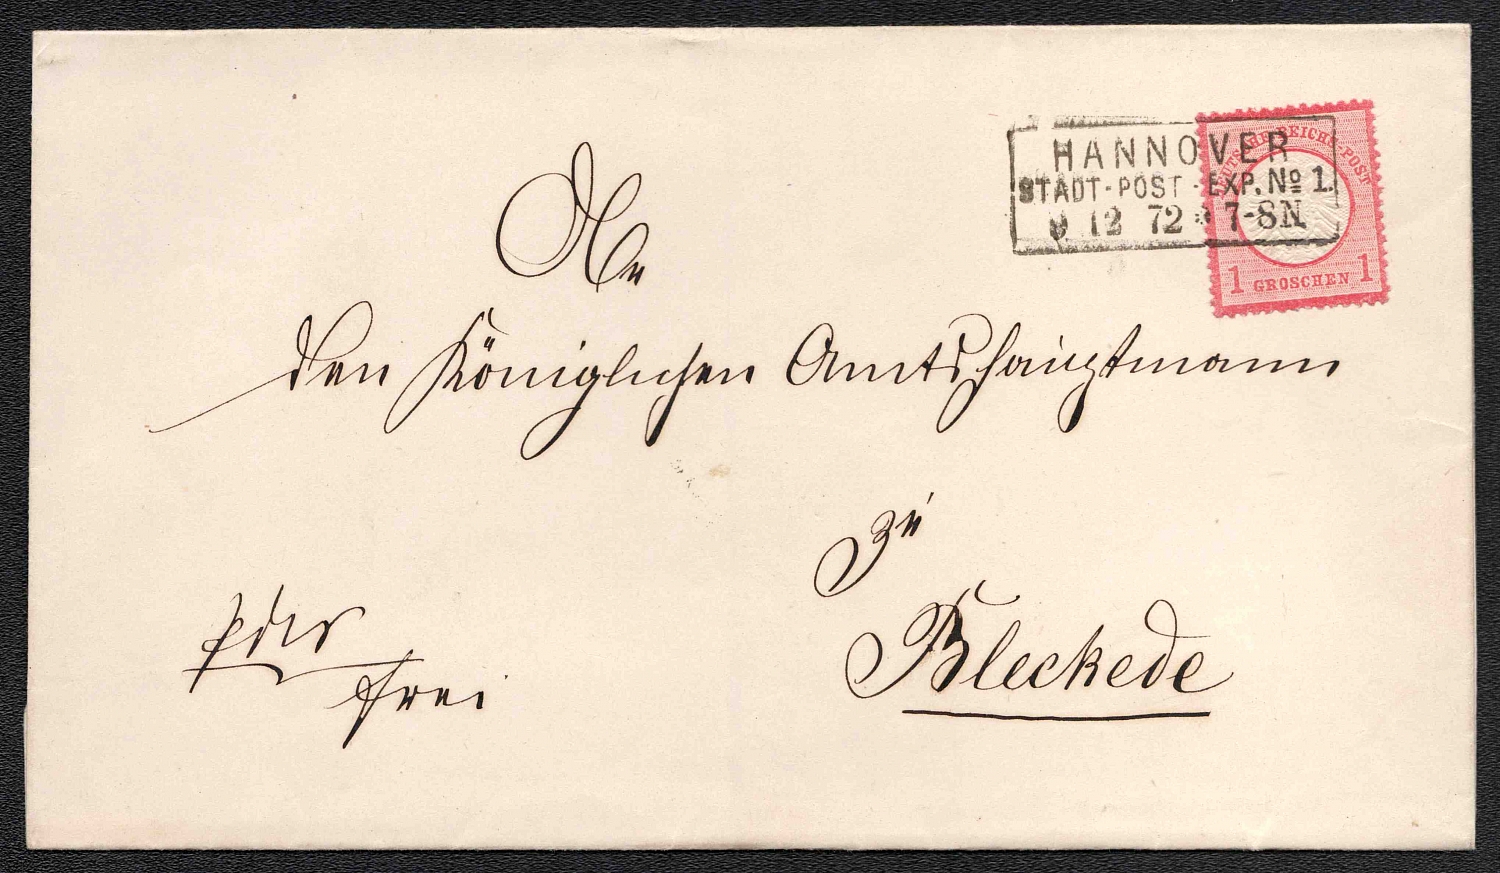 HANNOVER
STADT-POST-EXP. No 1.
9 12 72 * 7-8N
DEUTSCHE REICHS-POST
1 GROSCHEN 1
An
den Königlichen Amtshauptmann
zu
Bleckede
frei